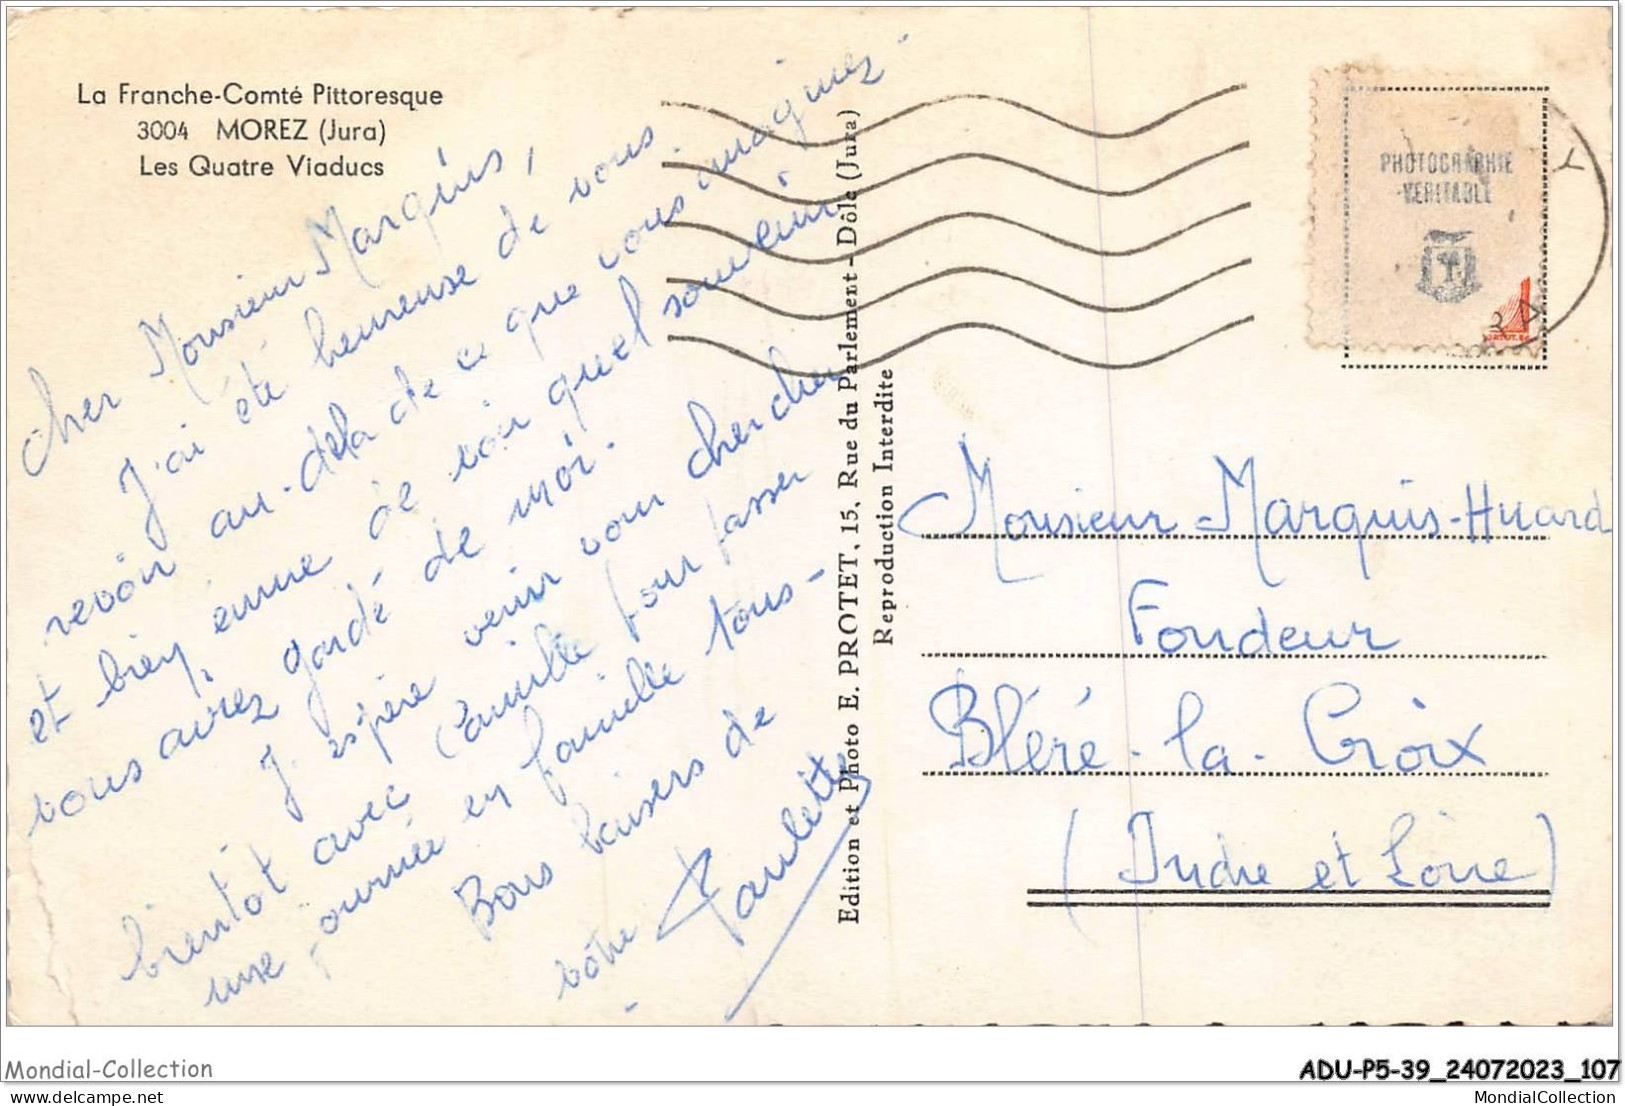 La Franche-Comté Pittoresque
3004 MOREZ (Jura)
Les Quatre Viaducs
Cher Monsieur Marquis,
J'ai été heureuse de vous
revoir au-delà de ce que vous imaginez
et bien émue de voir quel souvenir
vous aviez gardé de moi.
J'espère venir vous chercher
bientôt avec Camille pour passer
une journée en famille tous-
Bons baisers de
vôtre Paulette
Edition et Photo E. PROTET, 15, Rue du Parlement - Dôle (Jura)
Reproduction Interdite
PHOTOGRAPHIE
VERITABLE
Monsieur Marquis-Huard
Fondeur
Bléré-la-Croix
(Indre et Loire)
Mondial-Collection
ADU-P5-39_24072023_107
delcampe.net
MondialCollection